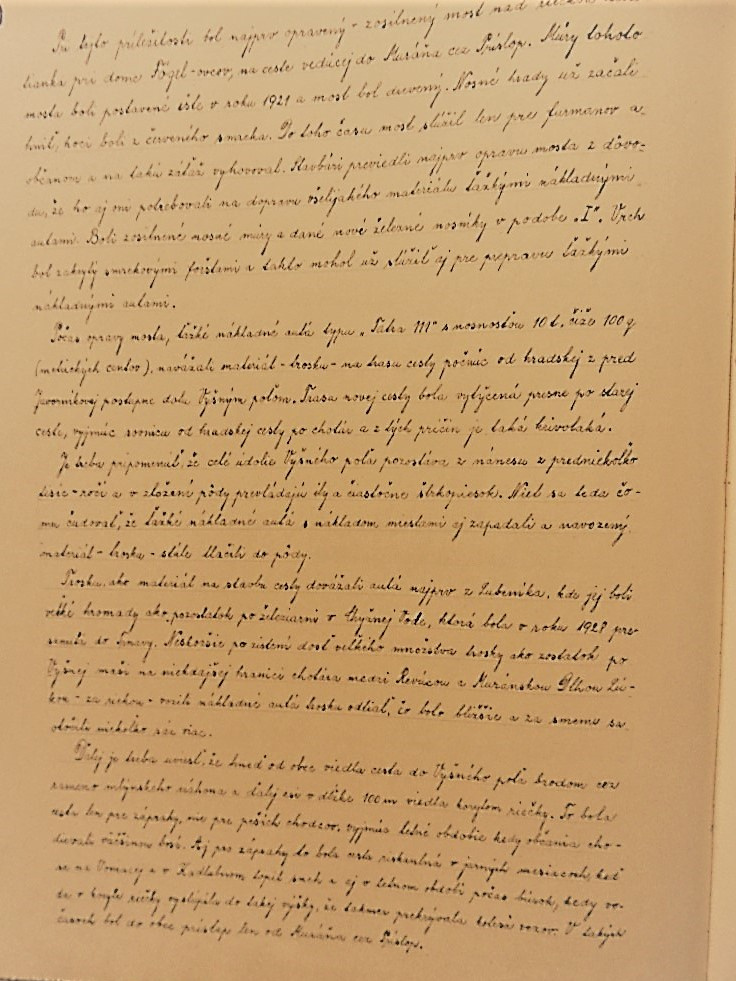 Pri tejto príležitosti bol najprv opravený - zosilnený most nad riečkou
tianka pri dome Fögel-ovcov, na ceste vedúcej do Muráňa cez Príslop. Múry tohoto
mosta boli postavené ešte v roku 1921 a most bol drevený. Nosné hrady už začali
hniť, hoci boli z červeného smreka. Do toho času most slúžil len pre furmanov a
občanom a na takú záťaž vyhovoval. Stavbári previedli najprv opravu mosta z dôvo-
du, že ho aj oni potrebovali na dopravu všelijakého materiálu ťažkými nákladnými
autami. Boli zosilnené nosné múry a dané nové železné nosníky v podobe „I". Vrch
bol zakrytý smrekovými foštami a takto mohol už slúžiť aj pre prepravu ťažkými
nákladnými autami.
Počas opravy mosta, ťažké nákladné autá typu „Tatra 111" s nosnosťou 10 t. čiže 100 q
(metrických centov), navážali materiál - trosku - na trasu cesty počnúc od hradskej z pred
Javorníkovej postupne dolu Vyšným poľom. Trasa novej cesty bola vytýčená presne po starej
ceste, vyjmúc rovnicu od hradskej cesty po chotár a z tých príčin je taká krivolaká.
Je treba pripomenúť, že celé údolie Vyšného poľa pozostáva z nánesu z predniekoľko
tisíc-ročí a v zložení pôdy prevládajú íly a čiastočne štrkopiesok. Niet sa teda čo-
mu čudovať, že ťažké nákladné autá s nákladom miestami aj zapadali a navozený
materiál - trosku - stále tlačili do pôdy.
Trosku, ako materiál na stavbu cesty dovážali autá najprv z Lubeníka, kde jej boli
veľké hromady ako pozostatok po železiarni v Chyžnej Vode, ktorá bola v roku 1927 pre-
sunutá do Trnavy. Neskoršie po zistení dosť veľkého množstva trosky ako zostatok po
Vyšnej maši na niekdajšej hranici chotára medzi Revúcou a Muránskou Dlhou Lú-
kou - za riekou - vozili nákladné autá trosku odtiaľ, čo bolo bližšie a za smenu sa
otočili niekoľko ráz viac.
Ďalej je treba uviesť, že hneď od obce viedla cesta do Vyšného poľa brodom cez
rameno mlynského náhona a ďalej asi v dĺžke 100 m viedla korytom riečky. To bola
cesta len pre záprahy, nie pre peších chodcov, vyjmúc letné obdobie kedy občania cho-
dievali väčšinou bosí. Aj pre záprahy to bola cesta riskantná v jarných mesiacoch, keď
sa na a v Kadlubnom topil sneh a aj v letnom období počas búrok, kedy vo-
da v koryte riečky vystúpila do takej výšky, že takmer prekrývala kolesá vozov. V takých
časoch bol do obce prístup len od Muráňa cez Príslop.